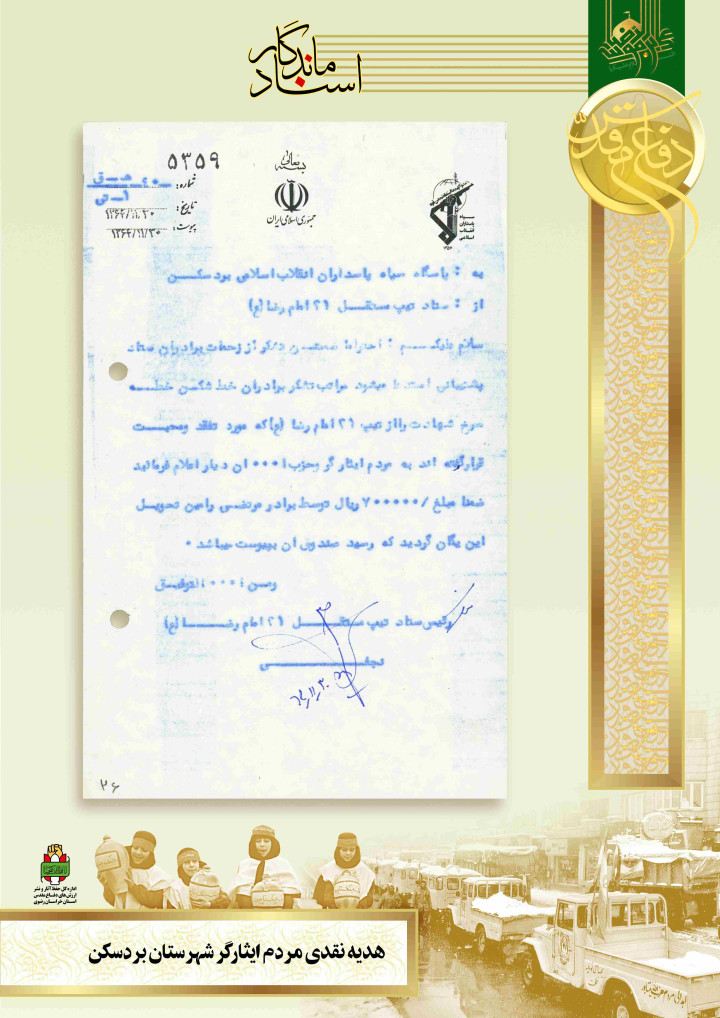 اسناد ماندگار
دفاع مقدس
بسمه تعالی
جمهوری اسلامی ایران
سپاه
پاسداران
انقلاب
اسلامی
۵۳۵۹
شماره:
تاریخ: ۱۳۶۲/۱۱/۳۰
پیوست: ۱۳۶۲/۱۱/۳۰
به : پاسگاه سپاه پاسداران انقلاب اسلامی بردسکن
از : ستاد تیپ مستقل ۲۱ امام رضا (ع)
سلام علیکم : احتراما ضمن تشکر از زحمات برادران ستاد
پشتیبانی استدعا میشود مراتب تشکر برادران خط شکن خطه
سرخ شهادت را از تیپ ۲۱ امام رضا (ع) که مورد تفقد ومحبت
قرار گرفته اند به مردم ایثار گر وحزب ا۰۰۰ ان دیار اعلام فرمائید
ضمنا مبلغ /۷۰۰۰۰۰ ریال توسط برادر مرتضی رامین تحویل
این یگان گردید که رسید صندوق ان بپیوست میباشد ۰
ومن ا۰۰۰ التوفیق
رئیس ستاد تیپ مستقل ۲۱ امام رضا (ع)
نجفی
۶۲٫۱۱٫۳۰
۲۶
اداره کل حفظ آثار و نشر
ارزش های دفاع مقدس
استان خراسان رضوی
هدیه نقدی مردم ایثارگر شهرستان بردسکن